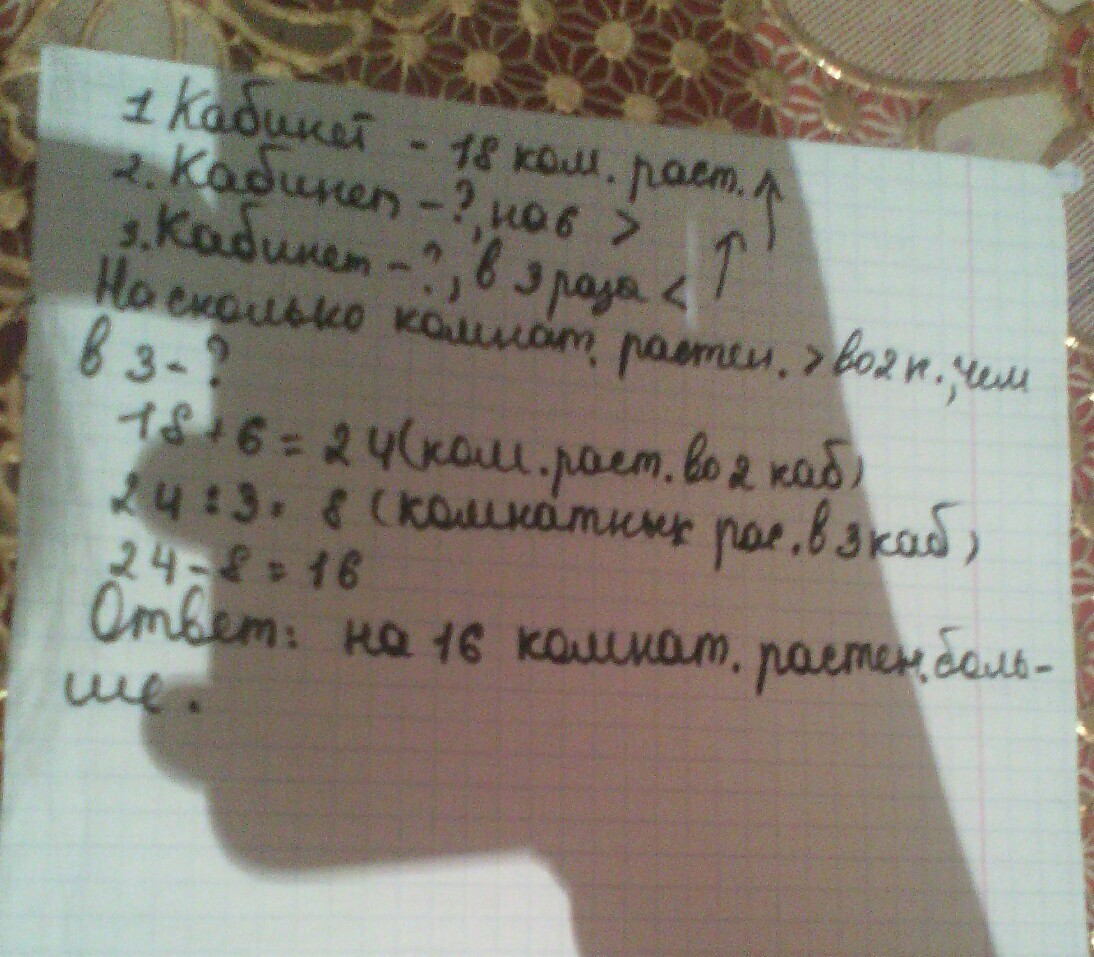 1 Кабинет - 18 ком. раст.
2. Кабинет - ?, на 6 >
3. Кабинет - ?, в 3 раза <
На сколько комнат. растен. > во 2 к., чем
в 3 - ?
18 + 6 = 24 (ком. раст. во 2 каб)
24 : 3 = 8 (комнатных рас. в 3 каб)
24 - 8 = 16
Ответ: на 16 комнат. растен. боль-
ше.